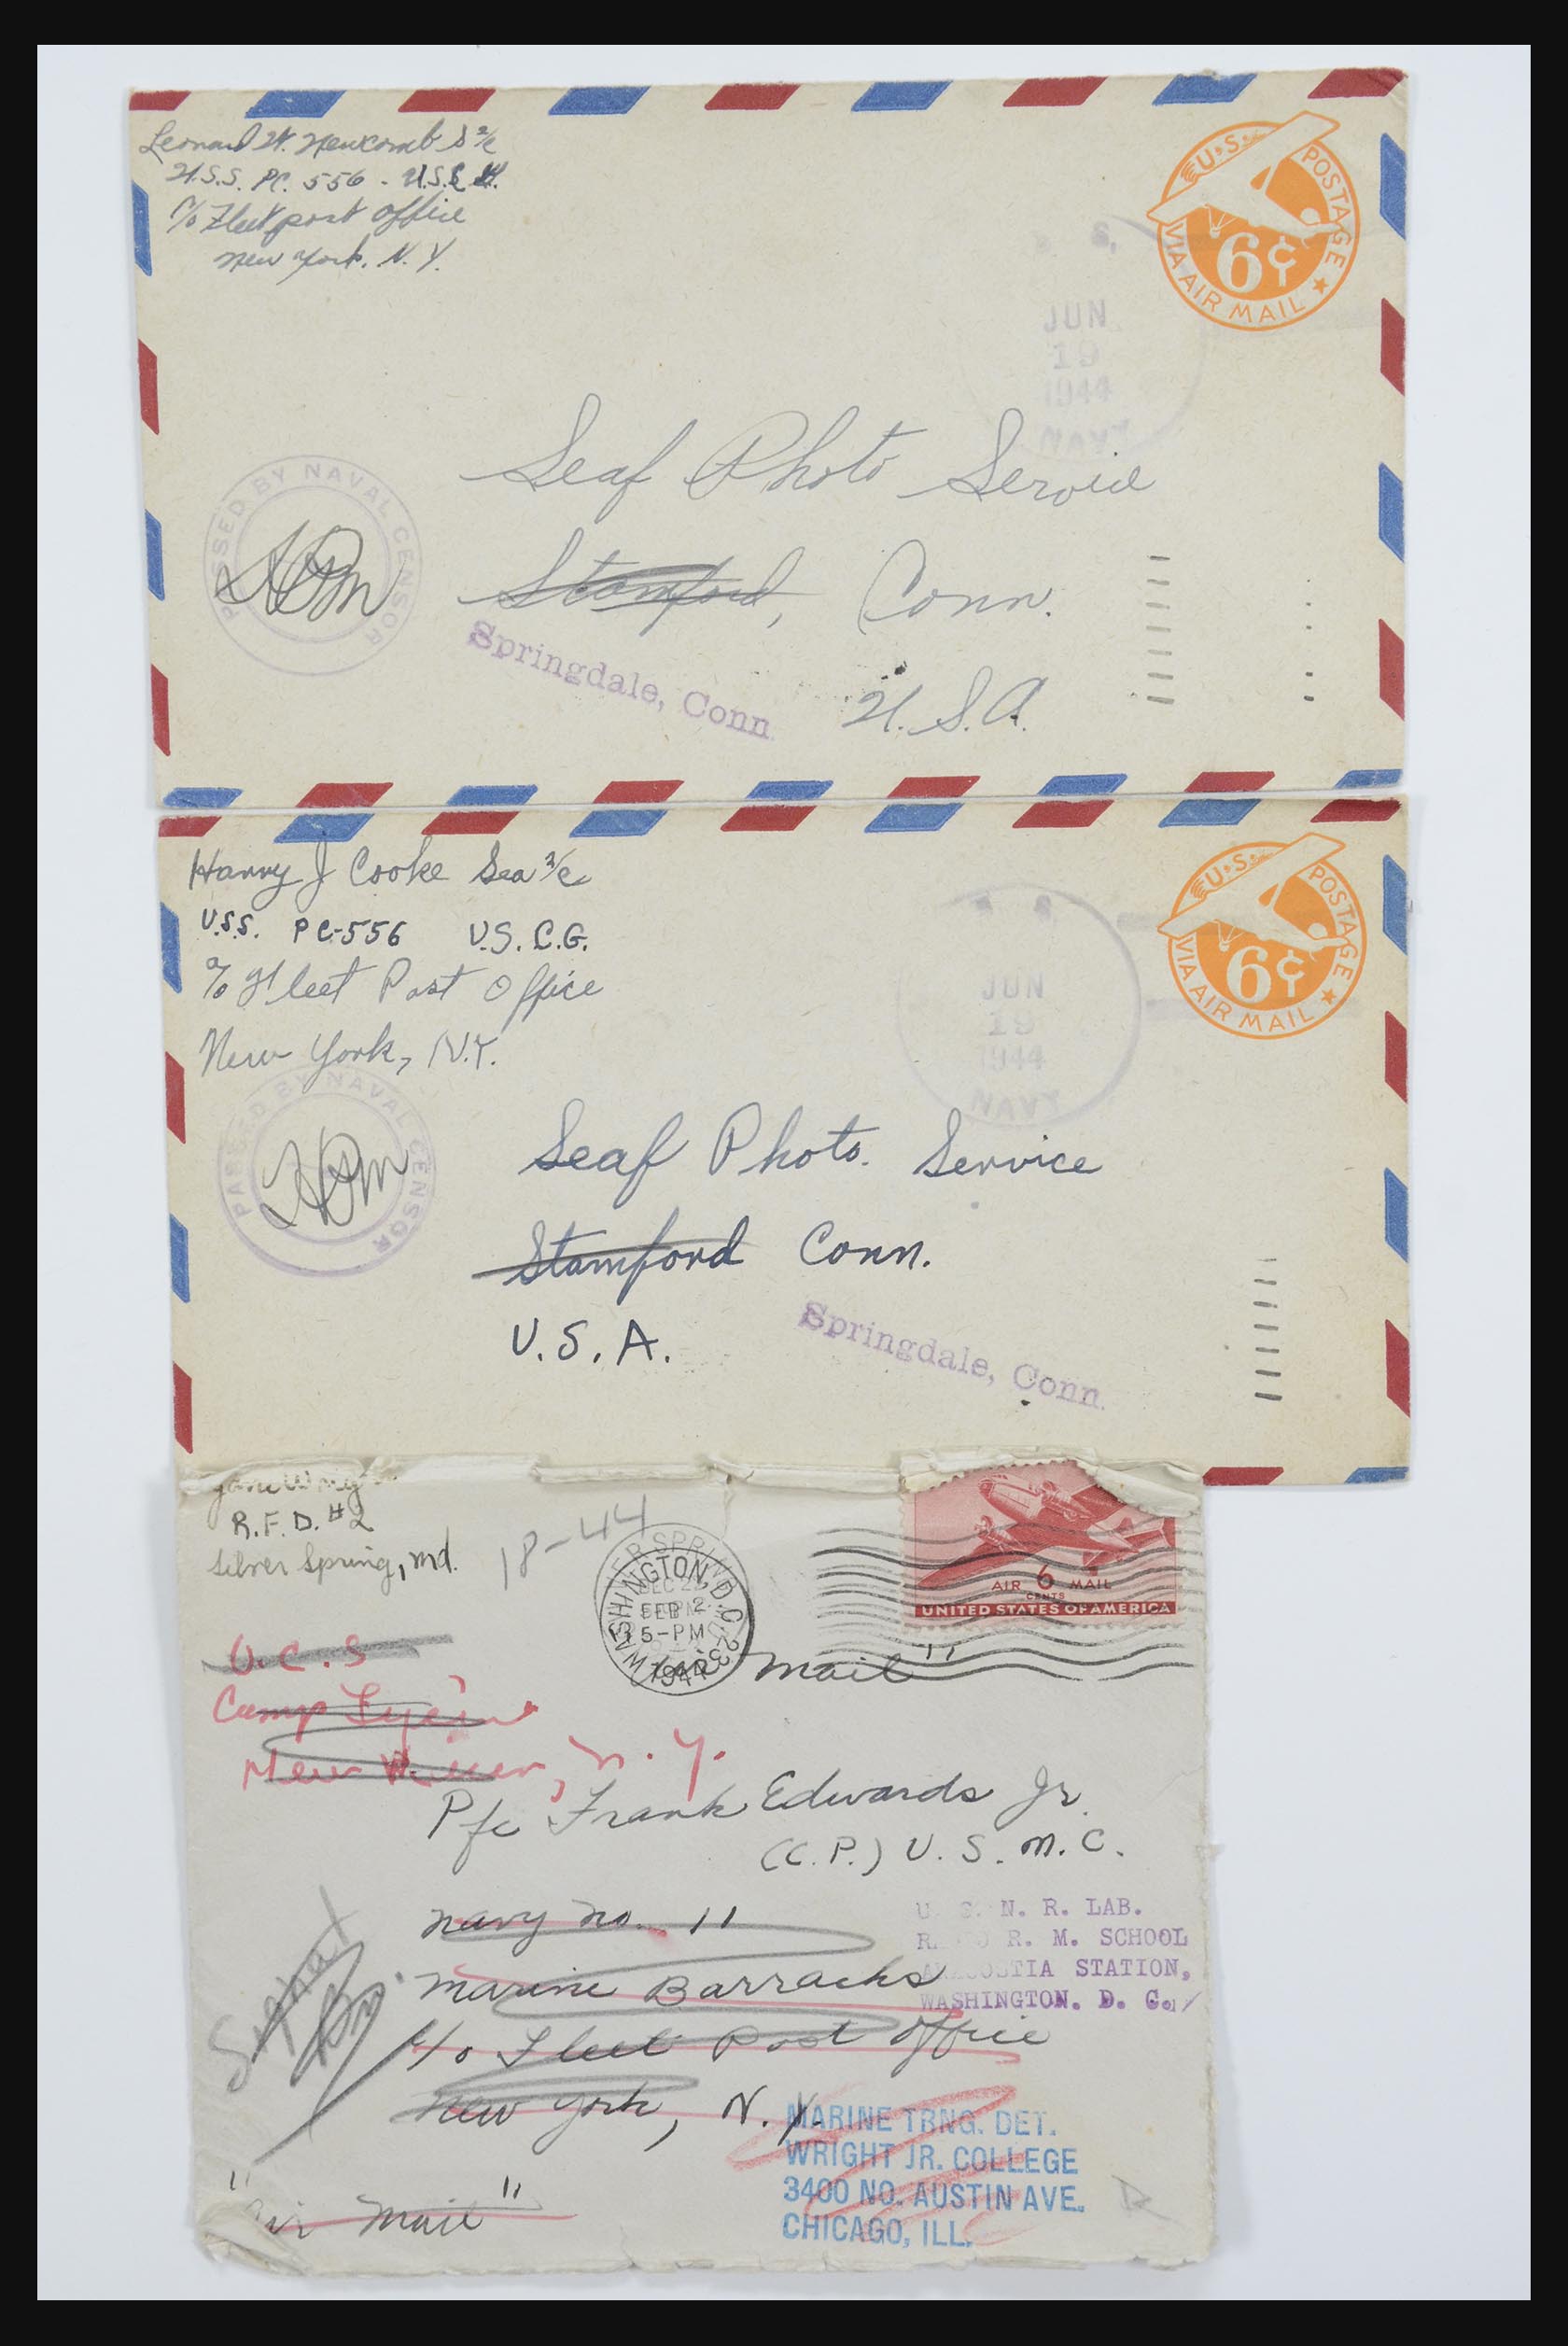 Leonard W. Newcomb S 2/c
U.S.S. PC. 556 - U.S.C.G.
c/o Fleet post office
New York. N. Y.
U.S. POSTAGE
6¢
VIA AIR MAIL
JUN
19
1944
NAVY
Seaf Photo Service
Stamford, Conn.
PASSED BY NAVAL CENSOR
Springdale, Conn.
U.S.A.
Harry J Cooke Sea 2/c
U.S.S. PC-556 U.S.C.G.
c/o Fleet Post Office
New York, N.Y.
U.S. POSTAGE
6¢
VIA AIR MAIL
JUN
19
1944
NAVY
PASSED BY NAVAL CENSOR
Seaf Photo. Service
Stamford Conn.
U.S.A.
Springdale, Conn.
Jane
R.F.D. #2
Silver Spring, Md.
18-44
WASHINGTON, D.C.
FEB 2
5-PM
1944
AIR 6 MAIL
CENTS
UNITED STATES OF AMERICA
mail"
O.C.S
Camp
New River, N.Y.
Pfc Frank Edwards Jr.
(C.P.) U.S.M.C.
Navy No. 11
Marine Barracks
c/o Fleet Post Office
New York, N.Y.
U. S. N. R. LAB.
R. M. SCHOOL
ANACOSTIA STATION,
WASHINGTON. D. C.
MARINE TRNG. DET.
WRIGHT JR. COLLEGE
3400 NO. AUSTIN AVE.
CHICAGO, ILL.
"Air Mail"